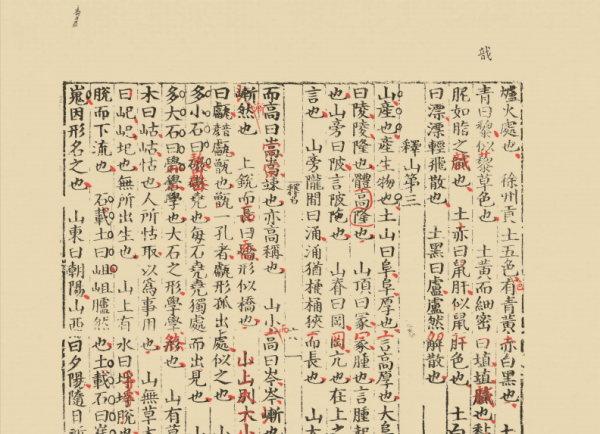 爐火處也　徐州貢土五色有青黃赤白黑也　土
青曰黎似黎草色也　土黃而細密曰埴埴膱也黏
胒如脂之膱也　土赤曰鼠肝似鼠肝色也　土
曰漂漂輕飛散也　土黑曰盧盧然解散也
釋山第三
山產也產生物也土山曰阜阜厚也言高厚也大阜
曰陵陵隆也體高隆也　山頂曰冢冢腫也言腫起
也山旁曰陂言陂陁也　山脊曰岡岡亢也在上之
言也　山旁隴間曰涌涌猶桶桶狹而長也　山大
而高曰嵩嵩竦也亦高稱也　山小高曰岑岑嶃也
嶃然也　上銳而長曰嶠形似橋也　山上別大小
曰甗甗甑也甑一孔者甗形孤出處似之也　山
多小石曰磝磝堯也每石堯堯獨處而出見也　山
多大石曰礐礐學也大石之形學學然也　山有草
木曰岵岵怙也人所怙取以為事用也　山無草木
曰屺屺圮也無所出生也　山上有水曰埒埒脫也
脫而下流也　石載土曰岨岨臚然也土載石曰崔
嵬因形名之也　山東曰朝陽山西曰夕陽隨日所